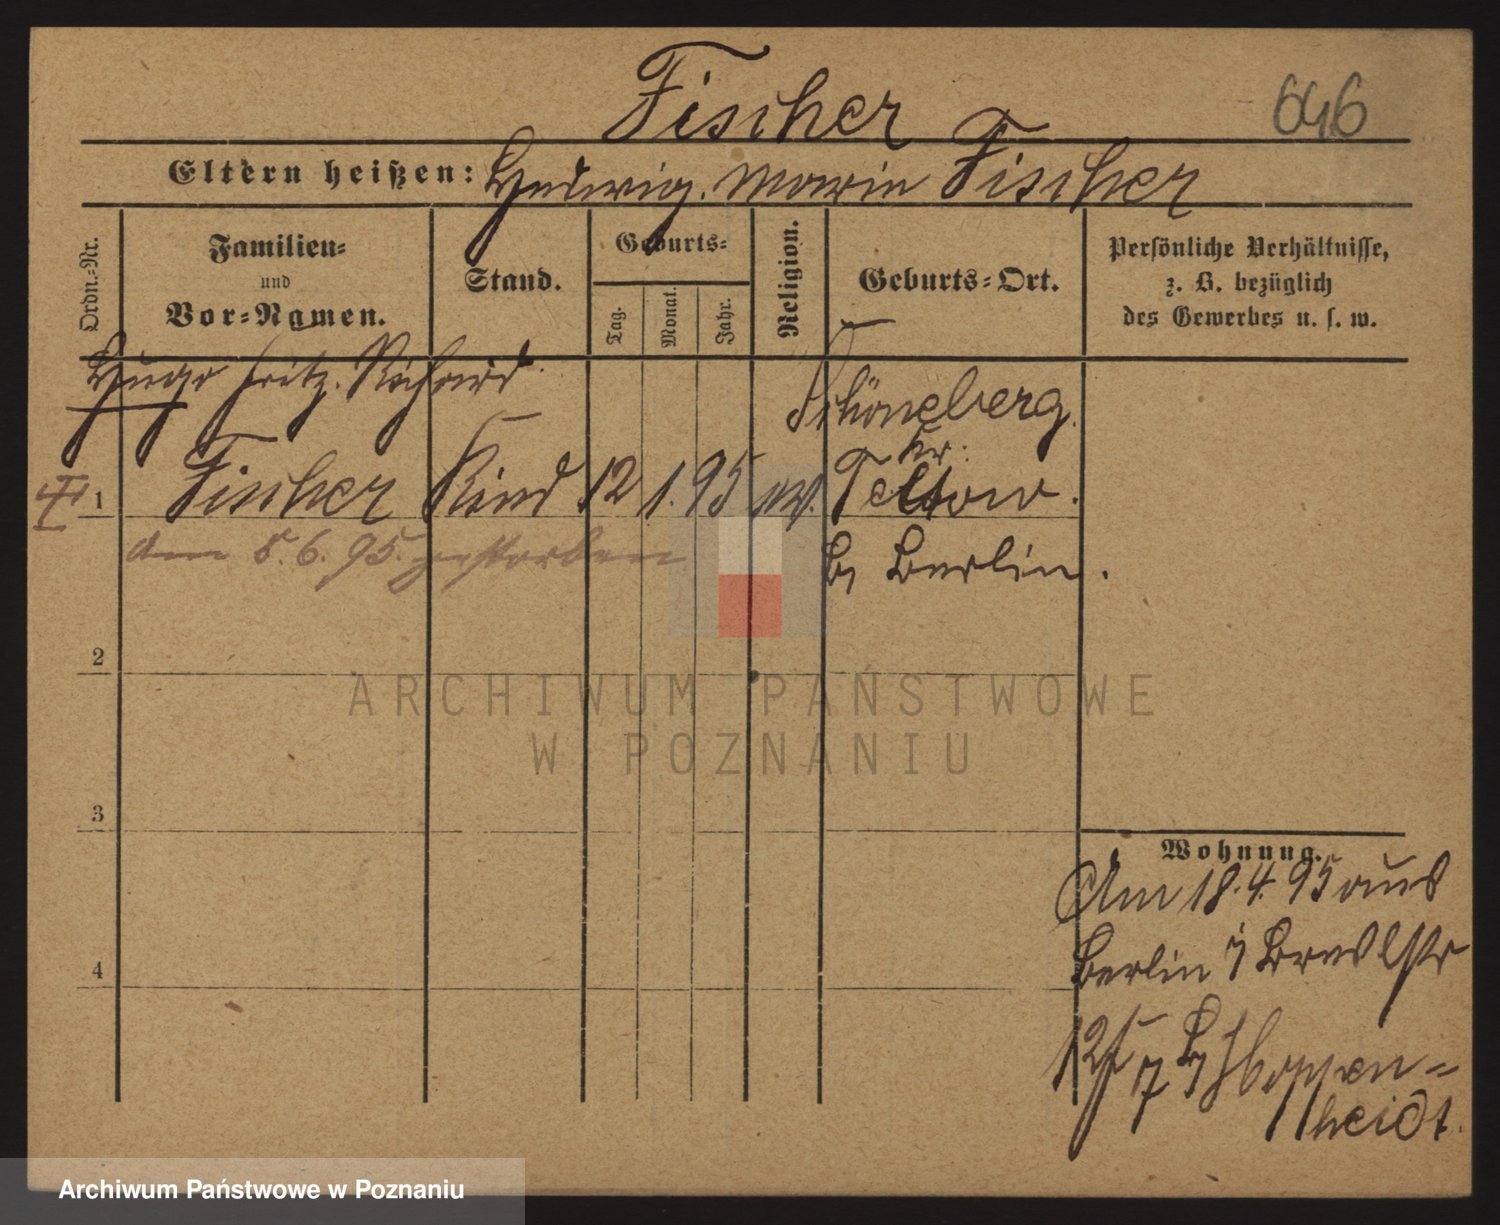 Fischer
646
Eltern heißen: Hedwig. Marie Fischer
Ordn.-Nr.
Familien-
und
Vor-Namen.
Stand.
Geburts-
Tag.
Monat.
Jahr.
Religion.
Geburts-Ort.
Persönliche Verhältnisse,
z. B. bezüglich
des Gewerbes u. s. w.
Hugo Fritz. Richard
Schöneberg.
Kr:
1 Fischer Kind 12 1. 95 ev. Teltow.
am 5. 6. 95. gestorben
b/ Berlin.
2
ARCHIWUM PAŃSTWOWE
W POZNANIU
3
Wohnung.
Am 18. 4. 95 aus
Berlin
4
heidt.
Archiwum Państwowe w Poznaniu